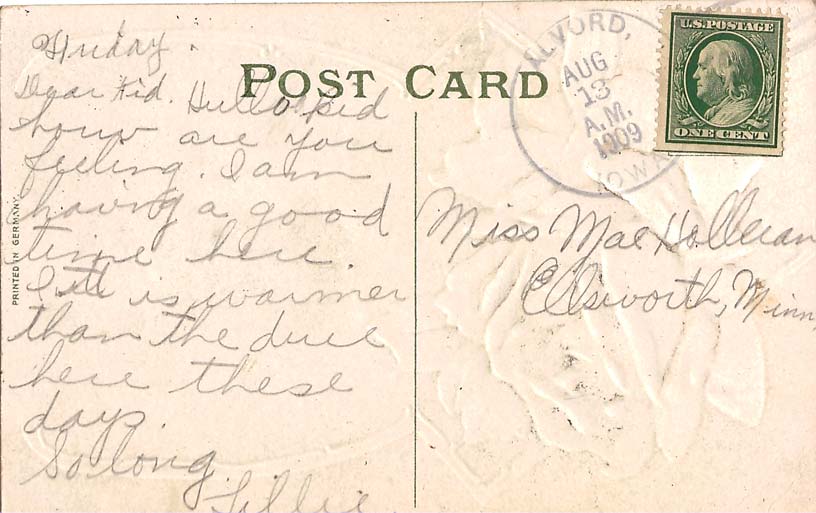 POST CARD
ALVORD,
AUG
13
A.M.
1909
IOWA
U.S. POSTAGE
ONE CENT
PRINTED IN GERMANY
Friday.
Dear Kid. Hullo kid
houw are you
feeling. I am
having a good
time here.
It is warmer
than the duce
here these
days.
So long
Lillie
Miss Mae Holleran
Ellsworth, Minn